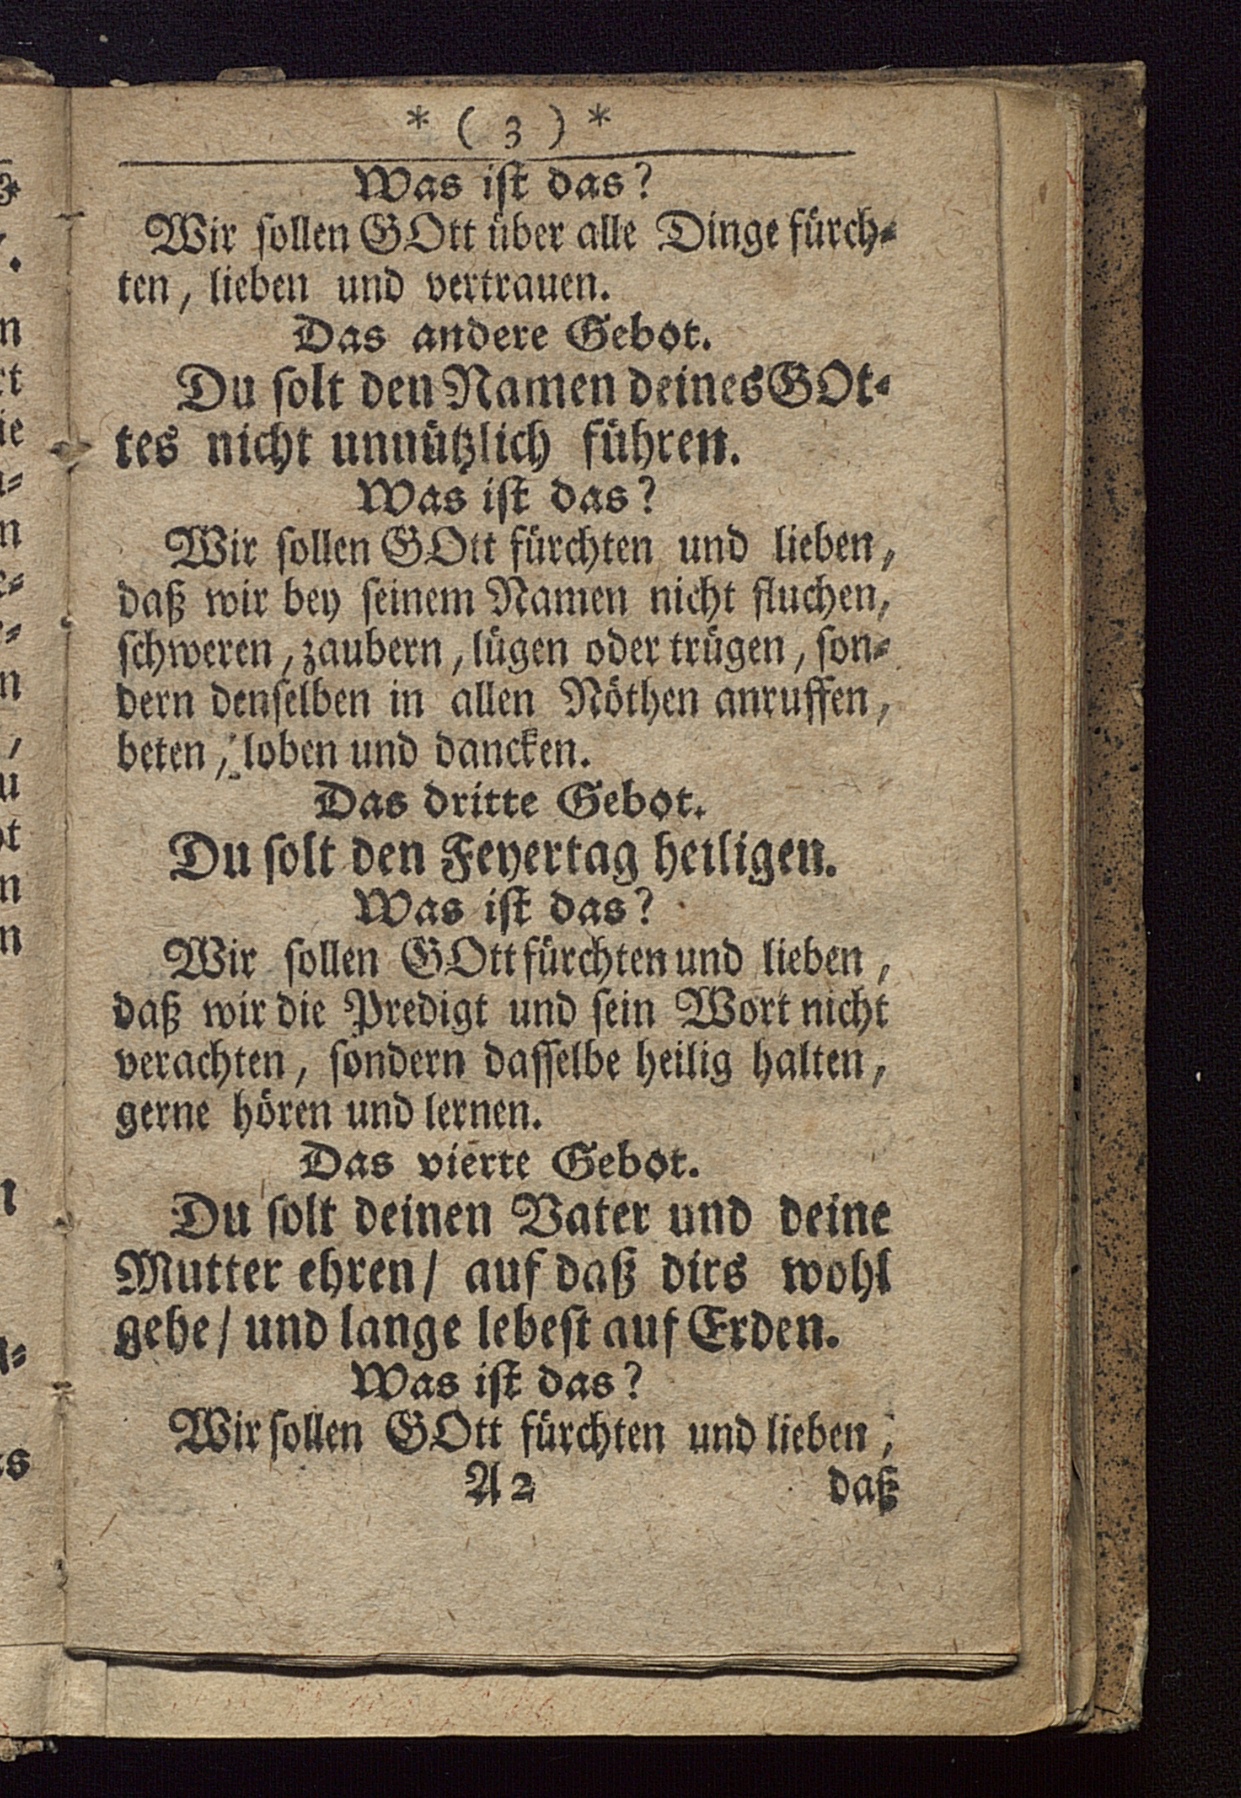 * ( 3 ) *
Was ist das?
Wir sollen GOtt über alle Dinge fürch-
ten, lieben und vertrauen.
Das andere Gebot.
Du solt den Namen deines GOt-
tes nicht unnützlich führen.
Was ist das?
Wir sollen GOtt fürchten und lieben,
daß wir bey seinem Namen nicht fluchen,
schweren, zaubern, lügen oder trügen, son-
dern denselben in allen Nöthen anruffen,
beten, loben und dancken.
Das dritte Gebot.
Du solt den Feyertag heiligen.
Was ist das?
Wir sollen GOtt fürchten und lieben,
daß wir die Predigt und sein Wort nicht
verachten, sondern dasselbe heilig halten,
gerne hören und lernen.
Das vierte Gebot.
Du solt deinen Vater und deine
Mutter ehren/ auf daß dirs wohl
gehe/ und lange lebest auf Erden.
Was ist das?
Wir sollen GOtt fürchten und lieben,
A 2 daß